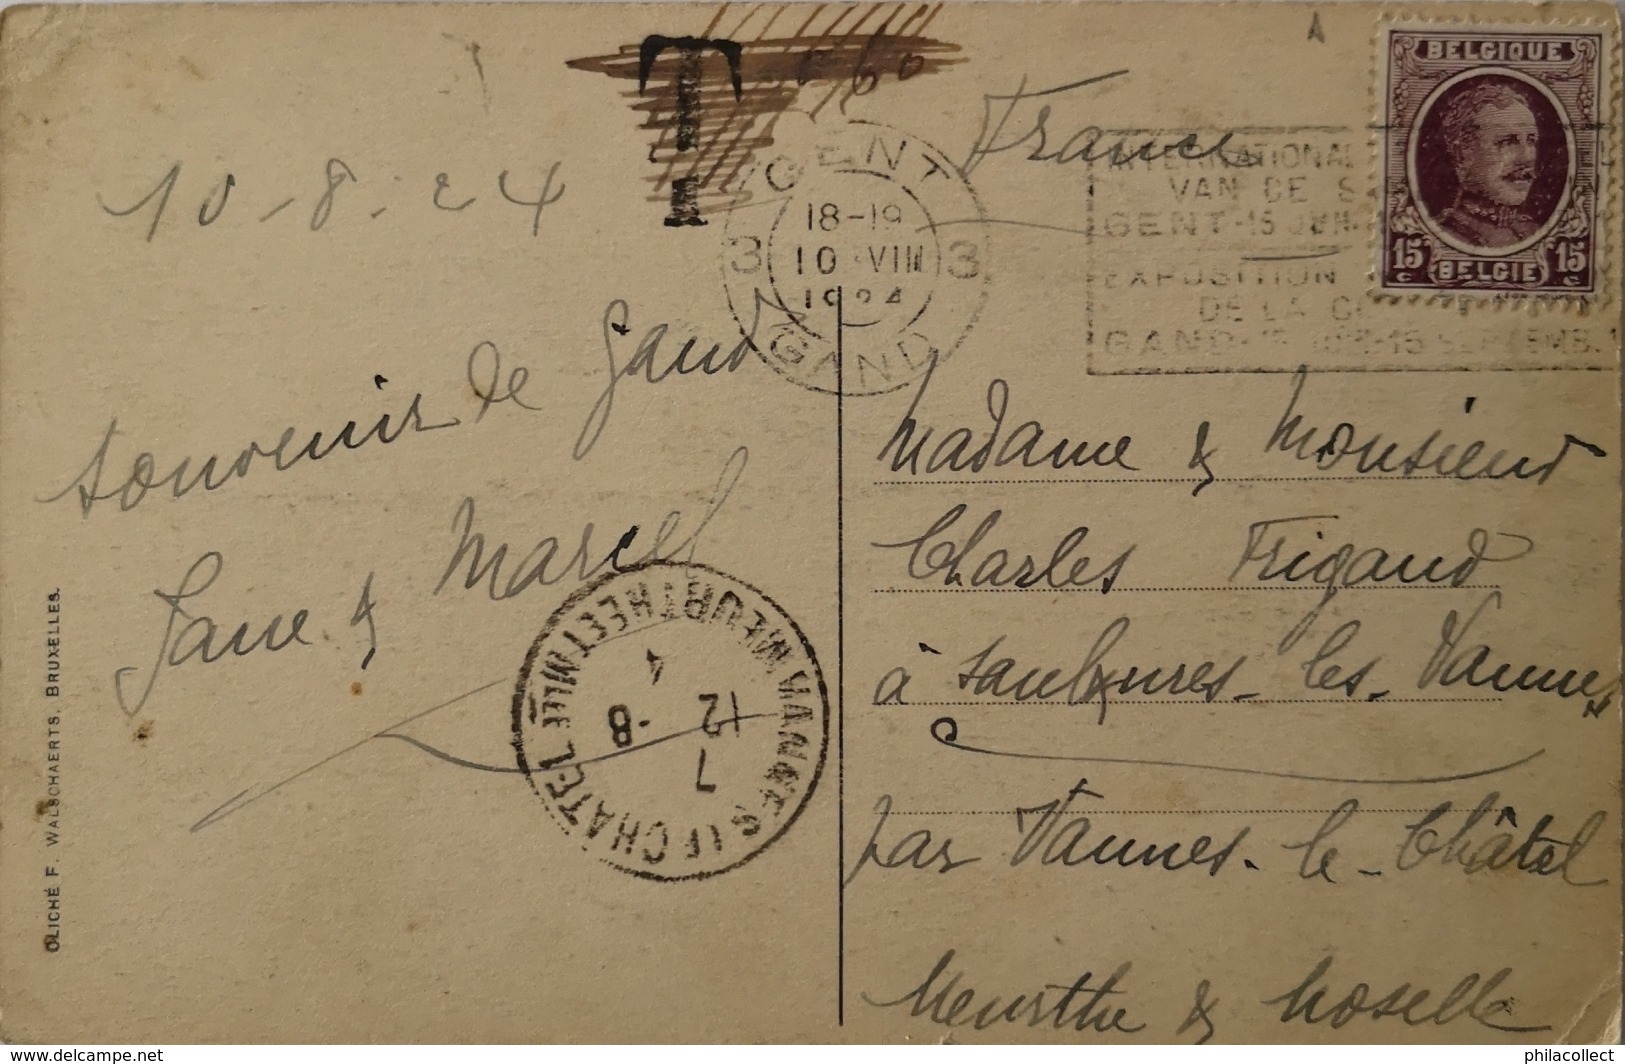 T
0-60
10-8-24
GENT 3 3 GAND
18-19
10 VIII
1924
France
INTERNATIONAL
VAN DE
GENT-15 JUNI-
EXPOSITION
DE LA
GAND-15 -15 SEPTEMB.
BELGIQUE
15 c 15 c
BELGIE
Souvenir de Gand
Jane & Marcel
VANNES LE CHATEL MEURTHE ET MLLE
7
12 -8
4
Madame & Monsieur
Charles Frigaud
à Saulxures-les-Vannes
par Vannes-le-Châtel
Meurthe & Moselle
CLICHÉ F. WALSCHAERTS, BRUXELLES.
http://www.delcampe.net
philacollect